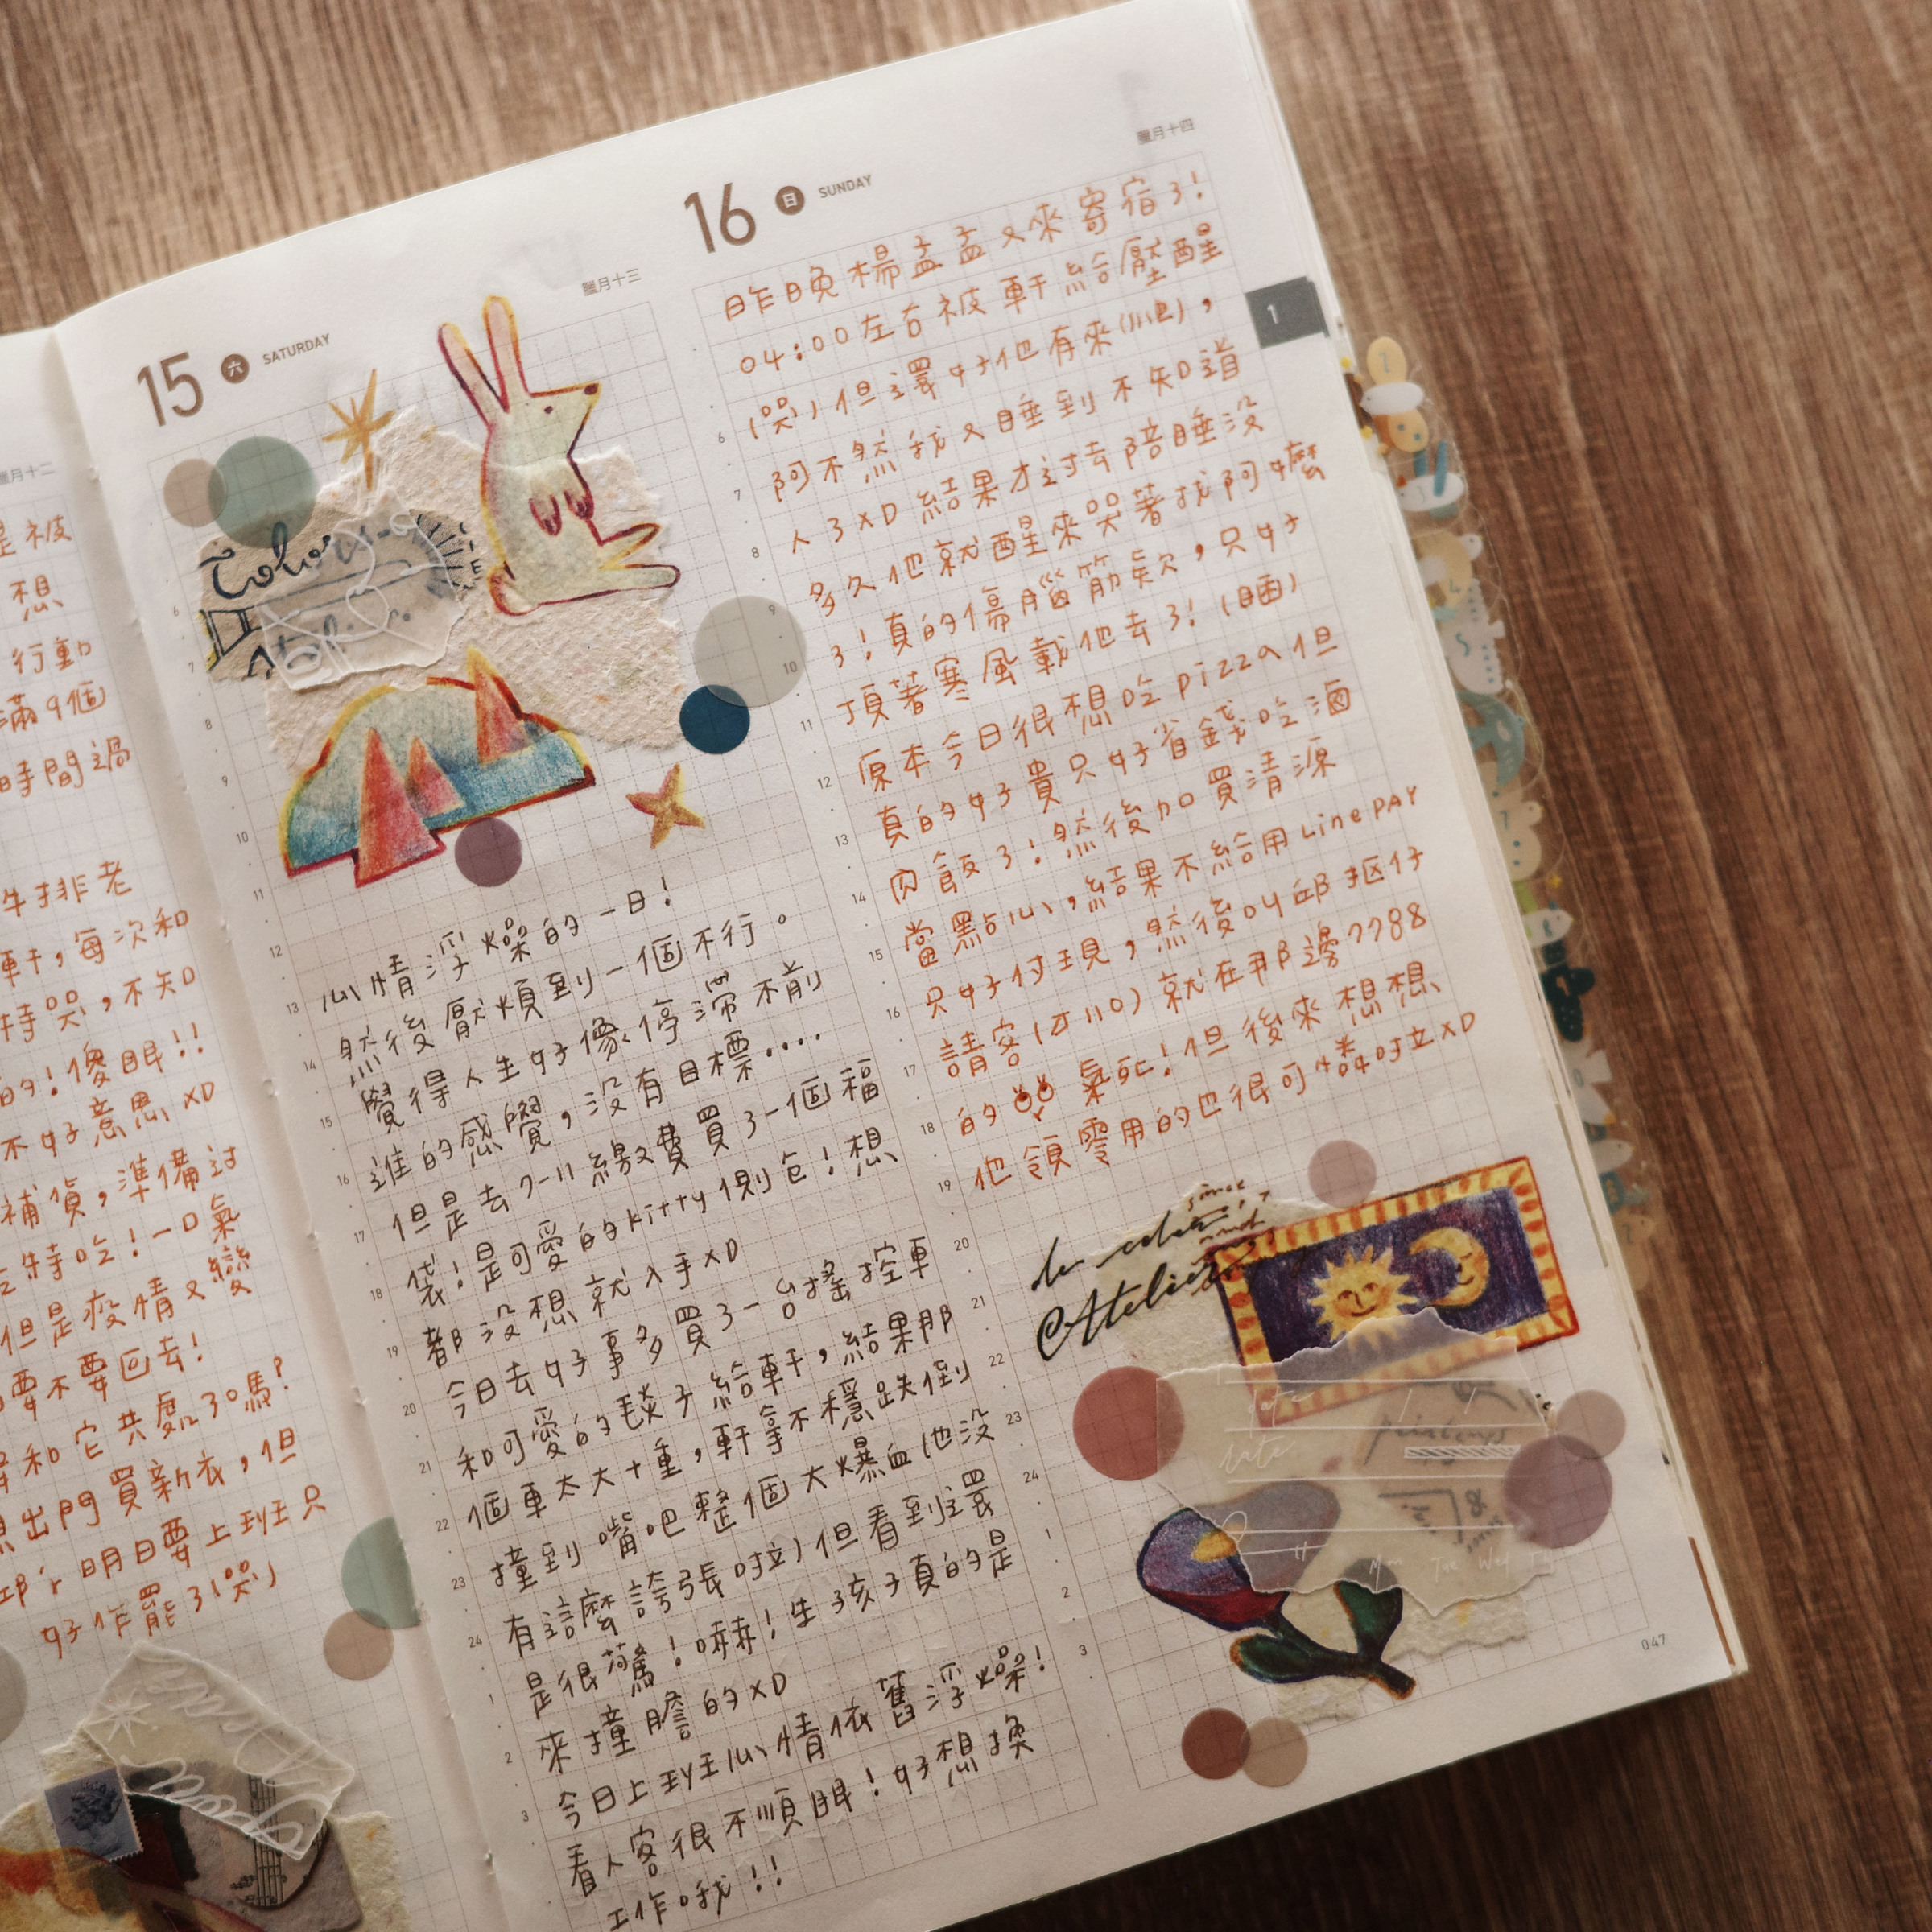 臘月十二
是被
想
行動
滿9個
時間過
牛排老
軒，每次和
特哭，不知
的！傻眼！！
不好意思XD
補貨，準備過
特吃！一口氣
但是疫情又變
要不要回去！
和它共處了嗎？
想出門買新衣，但
明日要上班只
好作罷了(哭)
15 六 SATURDAY
臘月十三
6
7
8
9
10
11
12
13
14
15
16
17
18
19
20
21
22
23
24
1
2
3
心情浮燥的一日！
然後厭煩到一個不行。
覺得人生好像停滯不前
進的感覺，沒有目標....
但是去7-11繳費買了一個福
袋！是可愛的kitty側包！想
都沒想就入手XD
今日去好事多買了一台搖控車
和可愛的毯子給軒，結果那
個車太大+重，軒拿不穩跌倒
撞到嘴吧整個大爆血(也沒
有這麼誇張啦)但看到還
是很驚！嚇！生孩子真的是
來撞膽的XD
今日上班心情依舊浮燥！
看人客很不順眼！好想換
工作哦！！
16 日 SUNDAY
臘月十四
1
昨日晚楊孟孟又來寄宿了！
04:00左右被軒給壓醒
(哭)但還好他有來(爬)，
阿不然我又睡到不知道
人了XD結果才過去陪睡沒
多久他就醒來哭著找阿嬤
了！真的傷腦筋欸，只好
頂著寒風載他去了！(睏)
原本今日很想吃pizza但
真的好貴只好省錢吃滷
肉飯了！然後加買清源
當點心，結果不給用Line PAY
只好付現，然後叫邱摳仔
請客(才110)就在那邊7788
的 氣死！但後來想想
他領零用的也很可憐啦XD
6
7
8
9
10
11
12
13
14
15
16
17
18
19
20
21
22
23
24
1
2
3
since
Atelier
date
printemps
Mon Tue Wed Th
047